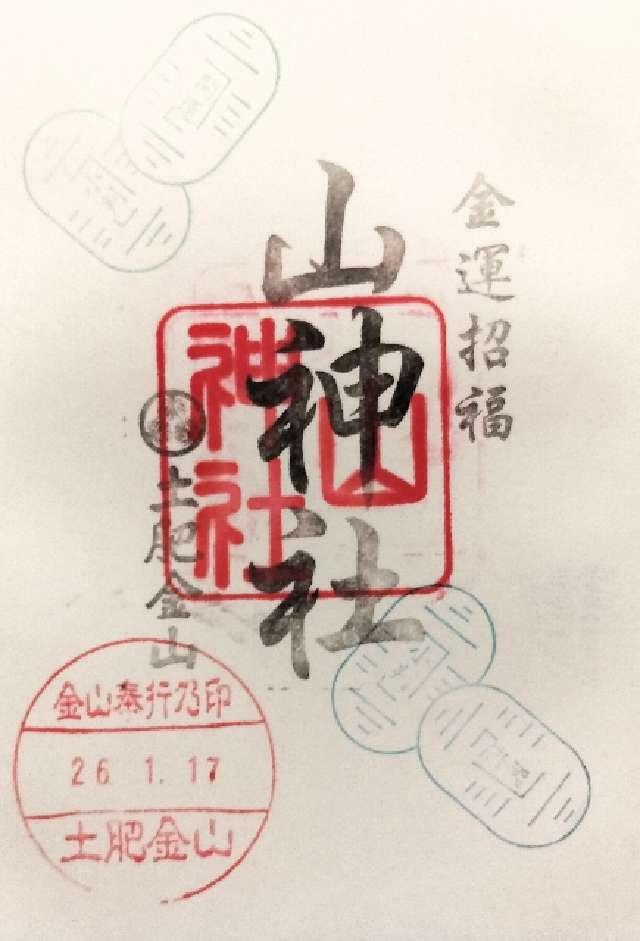 金運招福
山神社
山神社
土肥金山
金山奉行乃印
26.1.17
土肥金山